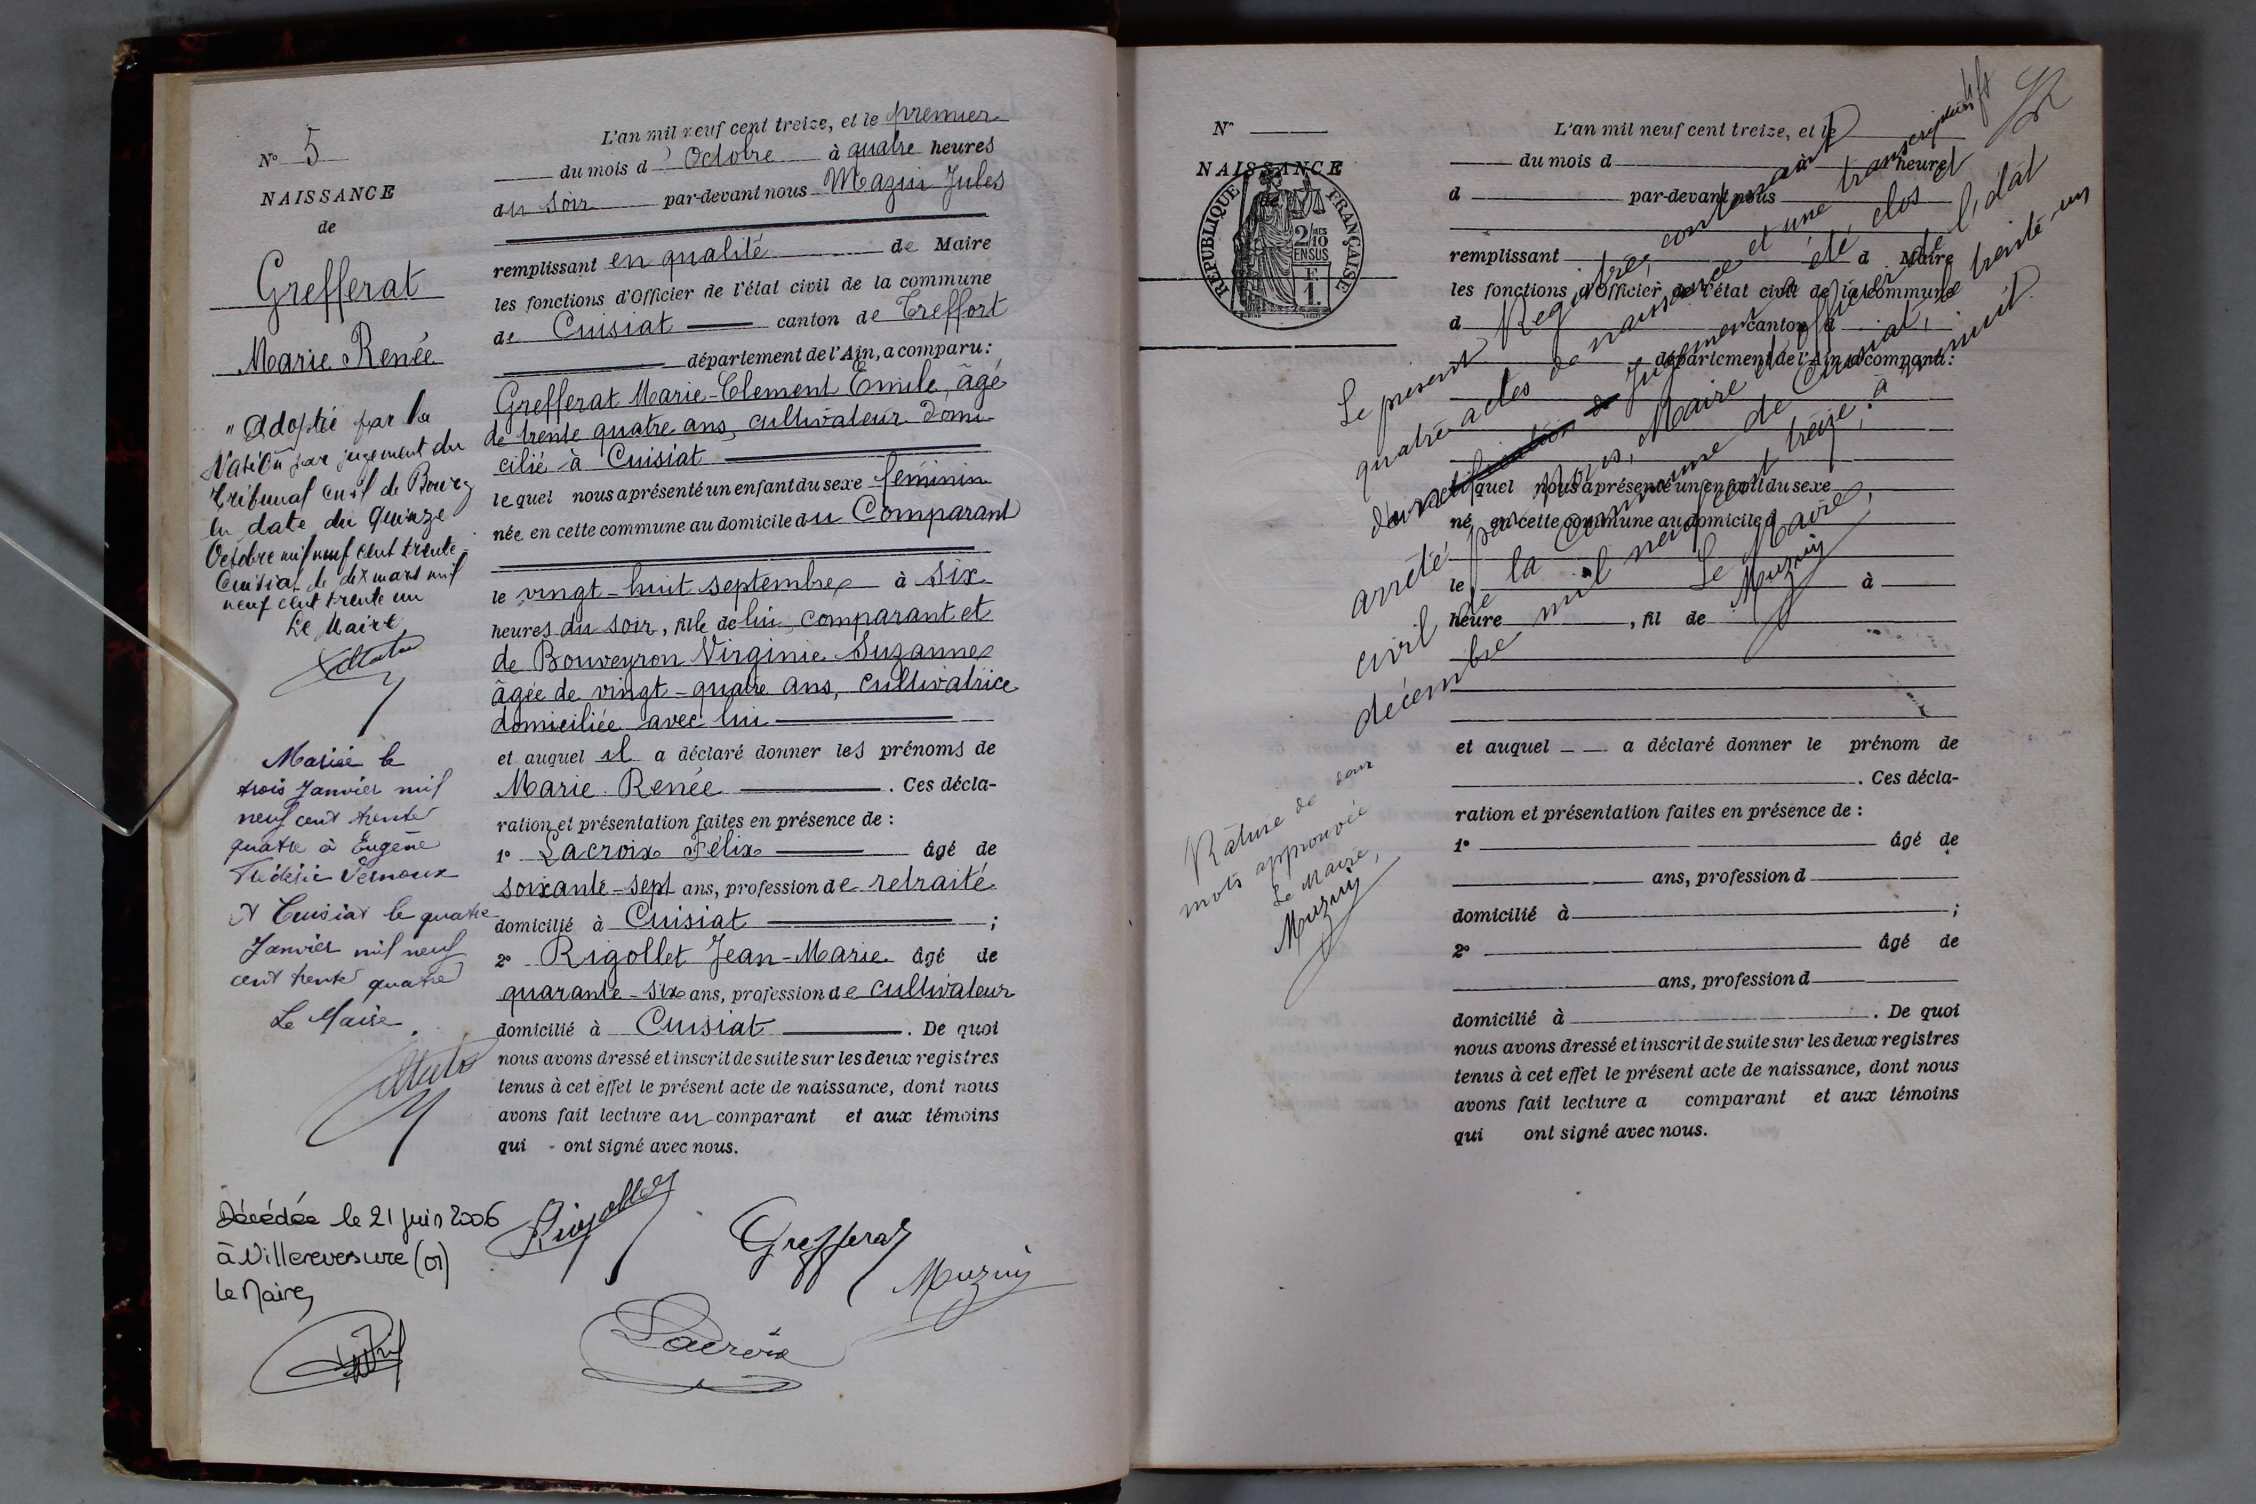 N° 5
NAISSANCE
de
Grefferat
Marie Renée
"Adoptée par la
Nation par jugement du
Tribunal civil de Bourg
en date du quinze
Octobre mil neuf cent trente -
Cuisiat le dix mars mil
neuf cent trente un
Le Maire
Mariée le
trois Janvier mil
neuf cent trente
quatre à Eugène
Frédéric Vernoux
A Cuisiat le quatre
Janvier mil neuf
cent trente quatre
Le Maire.
Décédée le 21 juin 2006
à Villereversure (01)
le Maire,
L'an mil neuf cent treize, et le premier
du mois d'Octobre à quatre heures
du soir par-devant nous Mazuy Jules
remplissant en qualité de Maire
les fonctions d'Officier de l'état civil de la commune
de Cuisiat canton de Treffort
département de l'Ain, a comparu :
Grefferat Marie-Clement Emile, âgé
de trente quatre ans, cultivateur domi-
cilié à Cuisiat
le quel nous a présenté un enfant du sexe féminin
née en cette commune au domicile du Comparant
le vingt-huit septembre à six
heures du soir, fille de lui comparant et
de Bouveyron Virginie Suzanne
âgée de vingt-quatre ans, cultivatrice
domiciliée avec lui
et auquel il a déclaré donner les prénoms de
Marie Renée . Ces décla-
ration et présentation faites en présence de :
1° Lacroix Félix âgé de
soixante-sept ans, profession de retraité
domicilié à Cuisiat ;
2° Rigollet Jean-Marie âgé de
quarante-six ans, profession de cultivateur
domicilié à Cuisiat . De quoi
nous avons dressé et inscrit de suite sur les deux registres
tenus à cet effet le présent acte de naissance, dont nous
avons fait lecture au comparant et aux témoins
qui - ont signé avec nous.
Rigollet
Grefferat
Muzuy
Lacroix
N°
NAISSANCE
de
RÉPUBLIQUE FRANÇAISE
2/10 EN SUS
F.
1.
L'an mil neuf cent treize, et le
du mois d à heure
d par-devant nous
remplissant d Maire
les fonctions d'Officier de l'état civil de la commune
d canton d
département de l'Ain, a comparu :
quel nous a présenté un enfant du sexe
né en cette commune au domicile d
le à
heure , fil de
et auquel a déclaré donner le prénom de
. Ces décla-
ration et présentation faites en présence de :
1° âgé de
ans, profession d
domicilié à ;
2° âgé de
ans, profession d
domicilié à . De quoi
nous avons dressé et inscrit de suite sur les deux registres
tenus à cet effet le présent acte de naissance, dont nous
avons fait lecture a comparant et aux témoins
qui ont signé avec nous.
Le présent Registre, contenant
quatre actes de naissance et une transcription
de rectification de Jugement a été clos et
arrêté par Nous, Maire et officier de l'état
civil de la Commune de Cuisiat, le trente-un
décembre mil neuf cent treize, à minuit
Le Maire,
Muzuy
Rature de deux
mots approuvée
Le Maire,
Muzuy